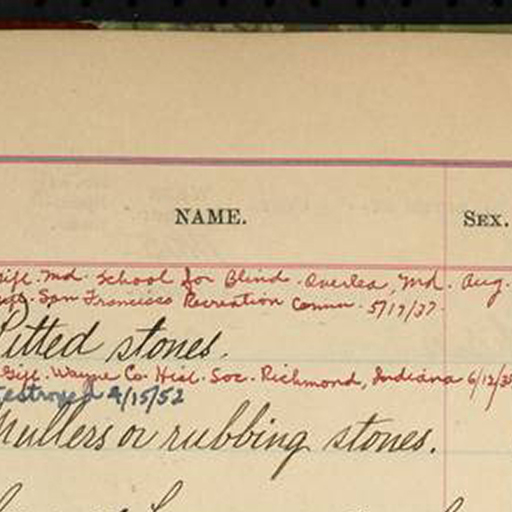 NAME. SEX.
Gift. Md. School for Blind. Overlea, Md. Aug.
Gift. San Francisco Recreation Comm. 5/17/37.
Pitted stones.
Gift. Wayne Co. Hist. Soc. Richmond, Indiana 6/12/3
Destroyed 9/15/52
Mullers or rubbing stones.